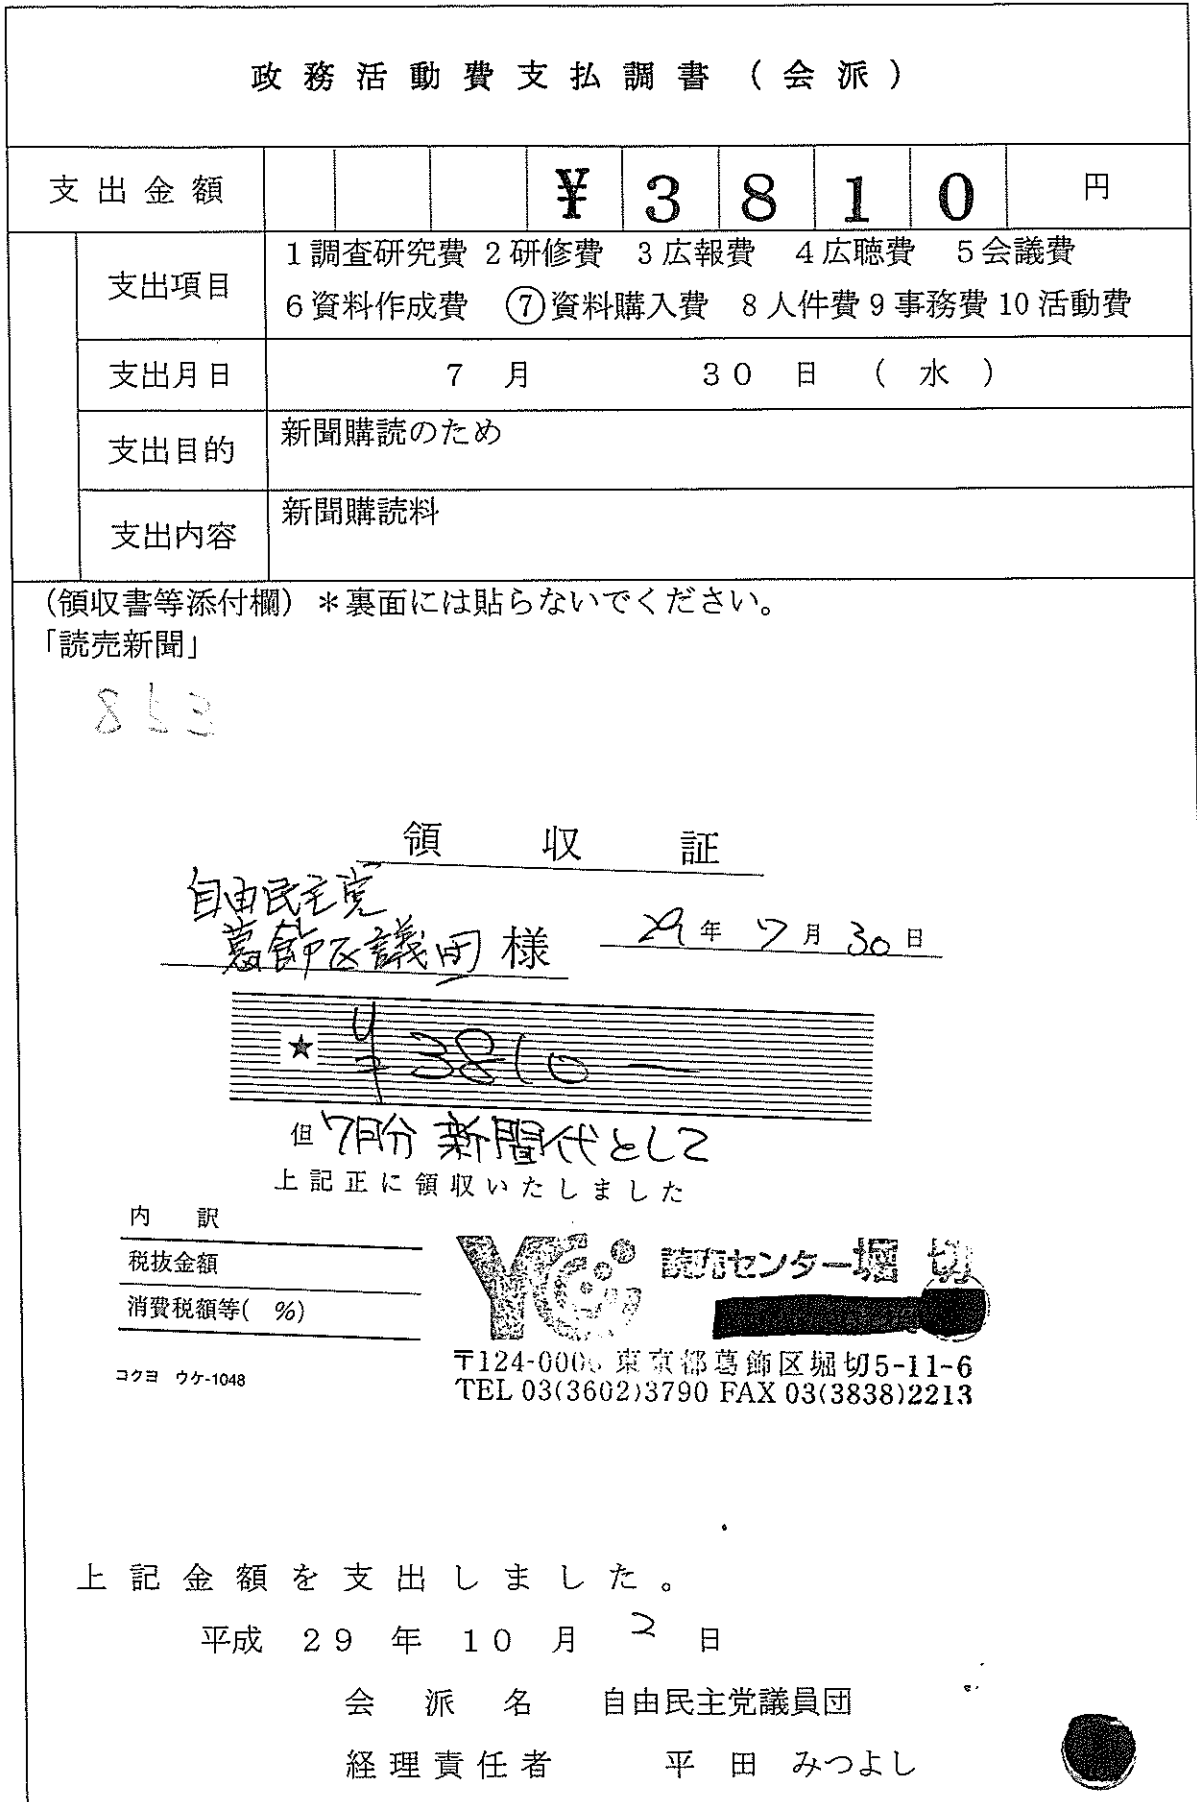 政務活動費支払調書（会派）
支出金額 ￥3810 円
支出項目 1調査研究費 2研修費 3広報費 4広聴費 5会議費
6資料作成費 ⑦資料購入費 8人件費 9事務費 10活動費
支出月日 7月 30日（水）
支出目的 新聞購読のため
支出内容 新聞購読料
（領収書等添付欄）＊裏面には貼らないでください。
「読売新聞」
領収証
自由民主党
葛飾区議団 様 29年7月30日
★ ￥3810ー
但 7月分 新聞代として
上記正に領収いたしました
内訳
税抜金額
消費税額等( %)
コクヨ ウケ-1048
YC 読売センター堀切
東京都葛飾区堀切5-11-6
TEL 03(3602)3790 FAX 03(3838)2213
上記金額を支出しました。
平成 29年 10月 2日
会派名 自由民主党議員団
経理責任者 平田 みつよし